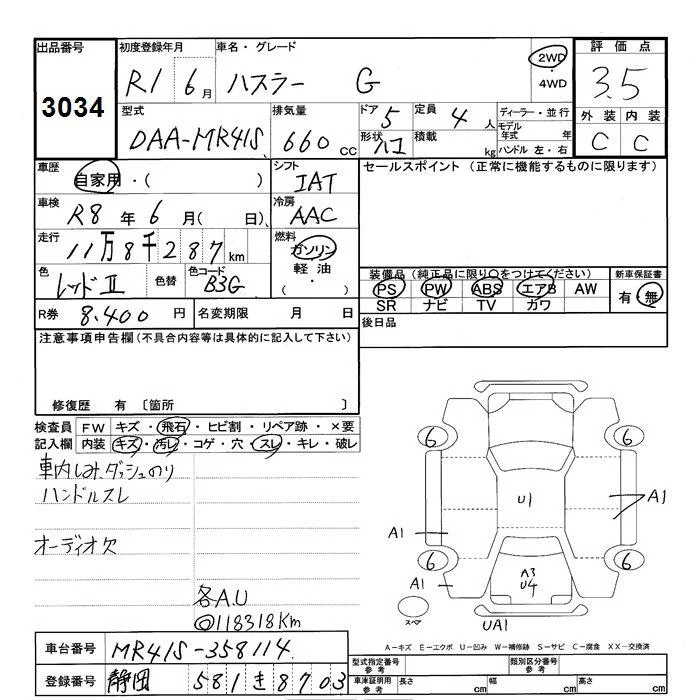 出品番号 初度登録年月 車名・グレード 2WD ・4WD 評価点
3034 R1 6月 ハスラー G 3.5
型式 排気量 ドア 5 定員 4人 ディーラー・並行 外装 内装
DAA-MR41S 660cc 形状 ハコ 積載 kg モデル年式 年 C C
ハンドル 左・右
車歴 自家用・( ) シフト IAT セールスポイント(正常に機能するものに限ります)
車検 R8年6月( 日) 冷房 AAC
走行 11万8千287km 燃料 ガソリン
軽油
( ・ )
色 レッドⅡ 色替 色コード B3G
装備品(純正品に限り○をつけてください) 新車保証書
PS PW ABS エアB AW 有・無
SR ナビ TV カワ
R券 8.400円 名変期限 月 日 後日品
注意事項申告欄(不具合内容等は具体的に記入して下さい)
修復歴 有 〔箇所 〕
検査員記入欄 FW キズ・飛石・ヒビ割・リペア跡・×要
内装 キズ・汚レ・コゲ・穴・スレ・キレ・破レ
車内しみ、ダッシュのり
ハンドルスレ
オーディオ欠
各A.U
◎118318Km
6 6
U1 A1
A1
6 6
A1 A3
U4
スペア UA1
A-キズ E-エクボ U-凹み W-補修跡 S-サビ C-腐食 XX-交換済
車台番号 MR41S-358114 型式指定番号 参考 類別区分番号 参考
登録番号 静岡 581 き 8703 車庫証明用 参考 長さ cm 幅 cm 高さ cm